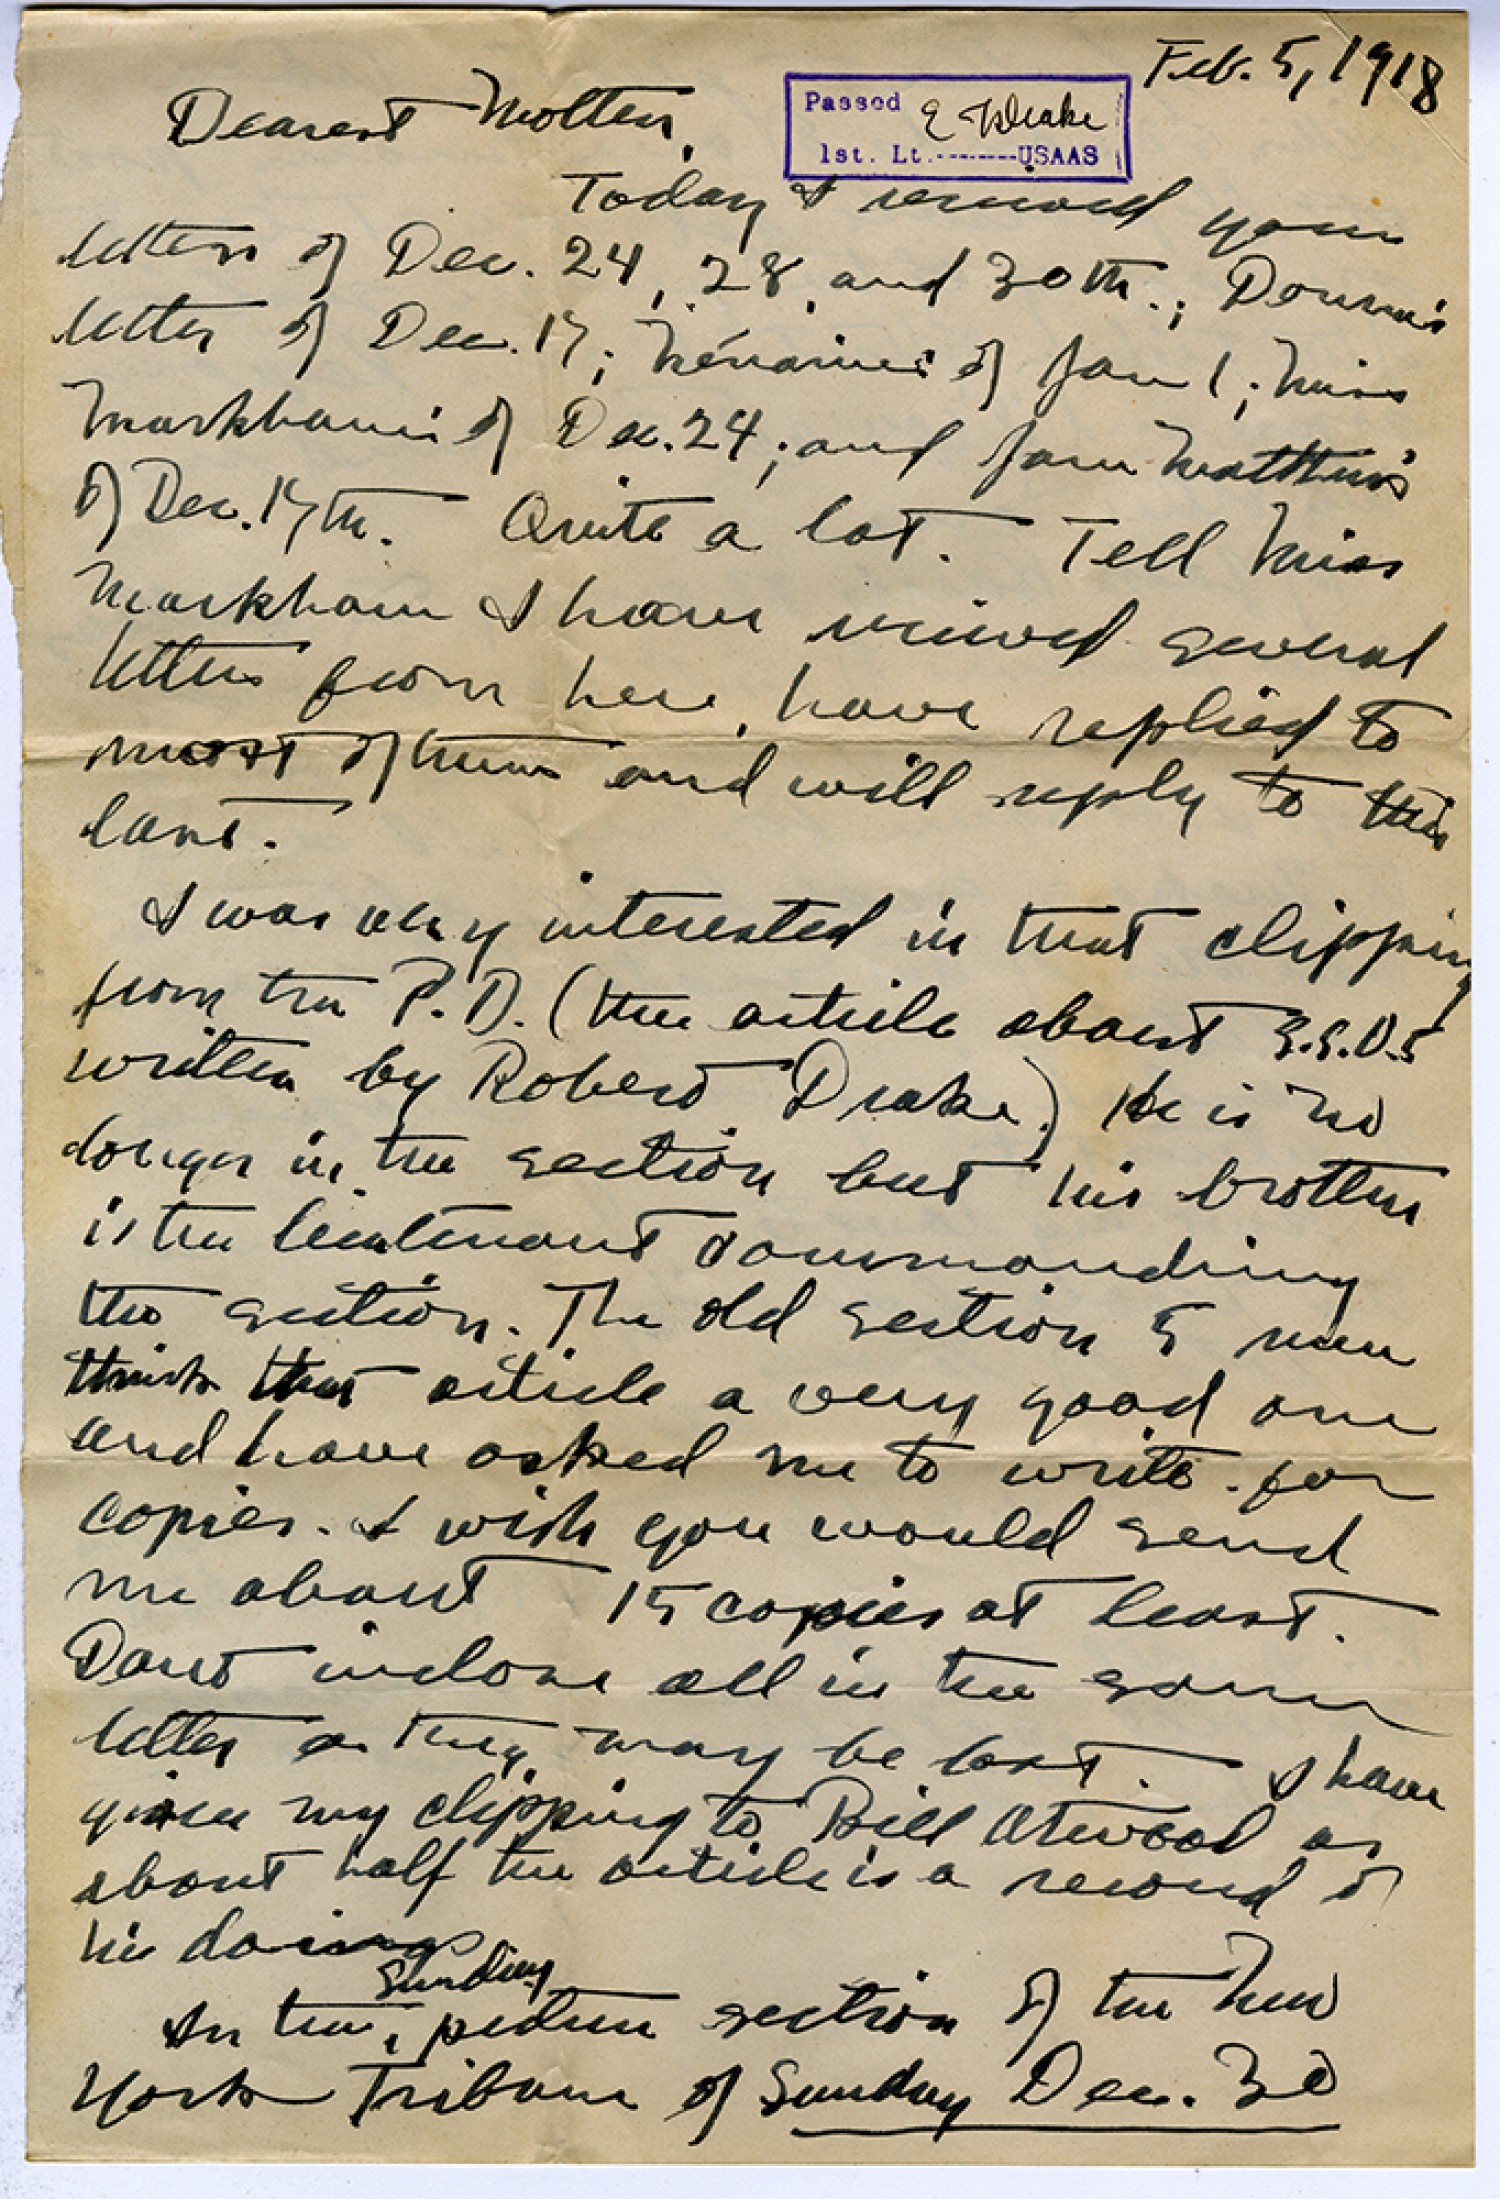 Feb. 5, 1918
Passed E T Drake
1st. Lt. USAAS
Dearest Mother,
Today I received your
letters of Dec. 24, 28, and 30th.;
letter of Dec. 17; of Jan 1; Miss
Markham's of Dec. 24; and Jane Matthew's
of Dec. 17th. Quite a lot. Tell Miss
Markham I have received several
letters from her, have replied to
most of them and will reply to this
last.
I was very interested in that clipping
from the P.D. (the article about S.S.U. 5
written by Robert Drake.) He is no
longer in the section but his brother
is the lieutenant commanding
the section. The old section 5 men
think that article a very good one
and have asked me to write for
copies. I wish you would send
me about 15 copies at least.
Dont inclose all in the same
letter as they may be lost. I have
given my clipping to Bill Atwood as
about half the article is a record of
his doings
In the Sunday picture section of the New
York Tribune of Sunday Dec. 30